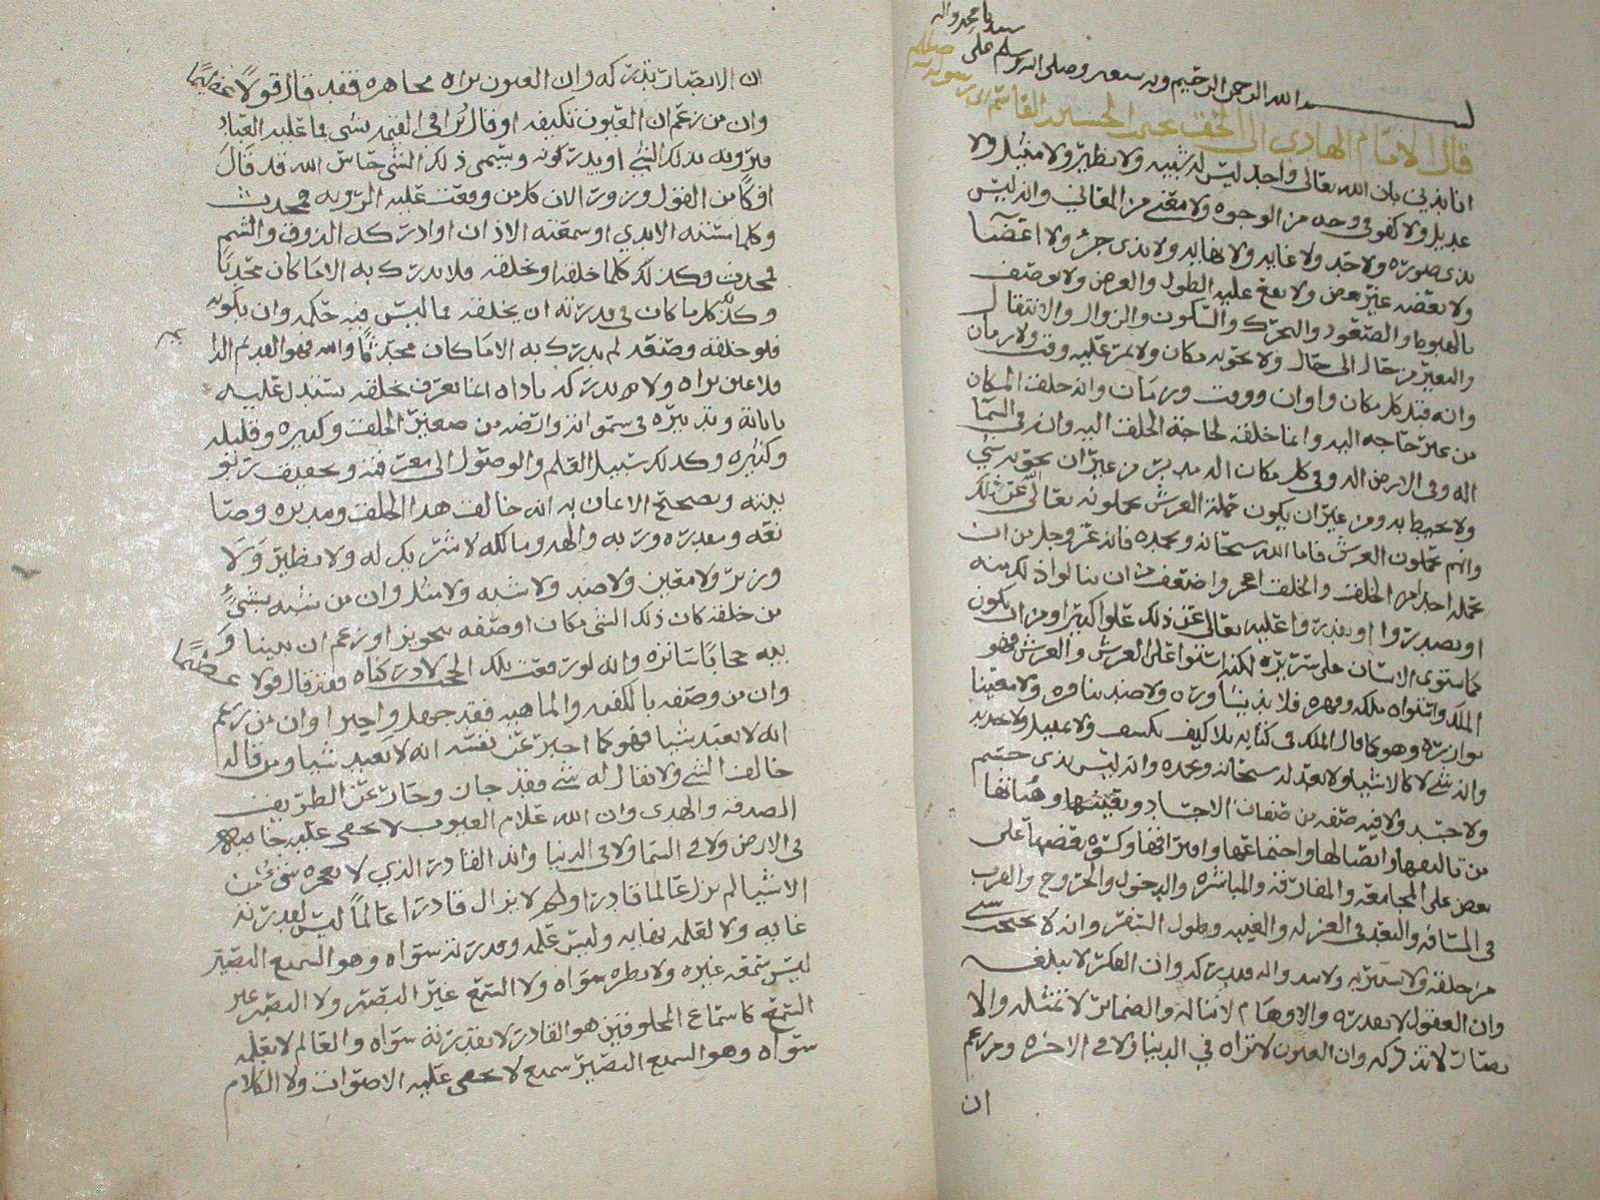 بسم الله الرحمن الرحيم وبه نستعين وصلى الله وسلم على
سيدنا محمد واله
قال الامام الهادي الى الحق يحيى بن الحسين بن القاسم بن رسول الله صلى الله
انا ندين بان الله تعالى واحد ليس له شبيه ولا نظير ولا مثيل ولا
عديل ولا كفو في وجه من الوجوه ولا معنى من المعاني وانه ليس
بذي صورة ولا حد ولا غاية ولا نهاية ولا بذي جزء ولا اعضا
ولا بعضه غير بعض ولا يقع عليه الطول والعرض ولا يوصف
بالهبوط والصعود والتحرك والسكون والزوال والانتقال
والتغير من حال الى حال ولا يحويه مكان ولا يمر عليه وقت ولا زمان
وانه قبل كل مكان واوان ووقت وزمان وانه خلق المكان
من غير حاجه اليه وانما خلقه لحاجة الخلق اليه وانه في السما
اله وفي الارض اله وفي كل مكان اله مدبر من غير ان يحويه شي
ولا يحيط به ومن غير ان يكون حملة العرش يحملونه تعالى عن ذلك
وانهم يحملون العرش فاما الله سبحانه وبحمده فانه عز وجل من ان
يحمله احد من الخلق والخلق اعجز واضعف من ان ينالوا ذلك منه
او يصدروا او يقدروا عليه تعالى عن ذلك علوا كبيرا ومن ان يكون
كما استوى الانسان على سريره لكنه استوا على العرش والعرش فهو
الملك واستواه ملكه وقهره فلا ند يناوره ولا ضد ينافره ولا معينا
يوازره وهو كما قال الملك في كتابه بلا كيف يكيف ولا تمثيل ولا تحديد
وانه شي لا كالاشيا ولا يعدله سبحانه وبحمده وانه ليس بذي جسم
ولا جسد ولا فيه صفه من صفات الاجساد وبقيتها وهياتها
من تاليفها واتصالها واجتماعها وافتراقها وكون بعضها على
بعض على المجامعه والمفارقه والمباشره والدخول والخروج والقرب
في المسافه والبعد في العزله والغيبه وطول السفر وانه لا يحتجب بشي
من خلقه ولا يستتر به ولا يبدوا له فيدركه وان الفكر لا تبلغه
وان العقول لا تقدره والاوهام لا تناله والضمائر لا تمثله والا
بصار لا تدركه وان العيون لا تراه في الدنيا ولا في الاخره ومن زعم
ان
ان الابصار تدركه وان العيون تراه مجاهره فقد قال قولا عظيما
وان من زعم ان العيون تكيفه او قال يرا في القيمه بشي مما عليه العباد
يرونه بذلك الشي او يدركونه ويسمى ذلك الشي حاس الله قد قال
افكا من القول وزورا لان كل من وقعت عليه الرويه محدث
وكلما مسته الايدي او سمعته الاذان او ادركه الذوق والشم
محدث وكذلك كلما خلقه او يخلقه فلا يدرك به الا ما كان محدثا
وكذلك كل ما كان في قدرته ان يخلقه مما ليس فيه حكمه وان يكونه
فلو خلقه وصنعه لم يدرك به الا ما كان محدثا والله فهو القديم الذي
فلا عين تراه ولا هو يدركه باداه انما يعرف بخلقه يستدل عليه
باياته وتدبيره في سمواته وارضه من صغير الخلق وكبيره وقليله
وكثيره وكذلك سبيل العلم والوصول الى معرفته وتحقيق ربو
بيته وتصحيح الايمان به انه خالق هذا الخلق ومدبره وصا
نعه ومقدره وربه والهه ومالكه لا شريك له ولا نظير ولا
وزير ولا معين ولا ضد ولا شبه ولا مثل وان من شبه بشي
من خلقه كان ذلك الشي مكان او صفه بتجويز او زعم ان بيننا و
بينه حجابا ساترا وانه لو رفعت تلك الحجب لادركناه فقد قال قولا عظيما
وان من وصفه بالكيفيه والماهيه فقد جهل واجترا وان من زعم
انه لا يعبد شيا فهو كما اخبر عن نفسه انه لا يعبد شيا ومن قال
خالق الشي ولا يقال له شي فقد جار وحاد عن الطريق
الصدق والهدى وان الله علام الغيوب لا يخفى عليه خافيه
في الارض ولا في السما ولا في الدنيا وانه القادر الذي لا يعجزه شي من
الاشيا لم يزل عالما قادرا ولا يزال قادرا عالما ليس لقدرته
غايه ولا لعلمه نهايه وليس علمه وقدرته سواه وهو السميع البصير
ليس سمعه غيره ولا بصره سواه ولا السمع غير البصر ولا البصر غير
السمع كاسماع المخلوقين هو القادر لا بقدرته سواه والعالم لا بعلم
سواه وهو السميع البصير سميع لا يخفى عليه الاصوات ولا الكلام